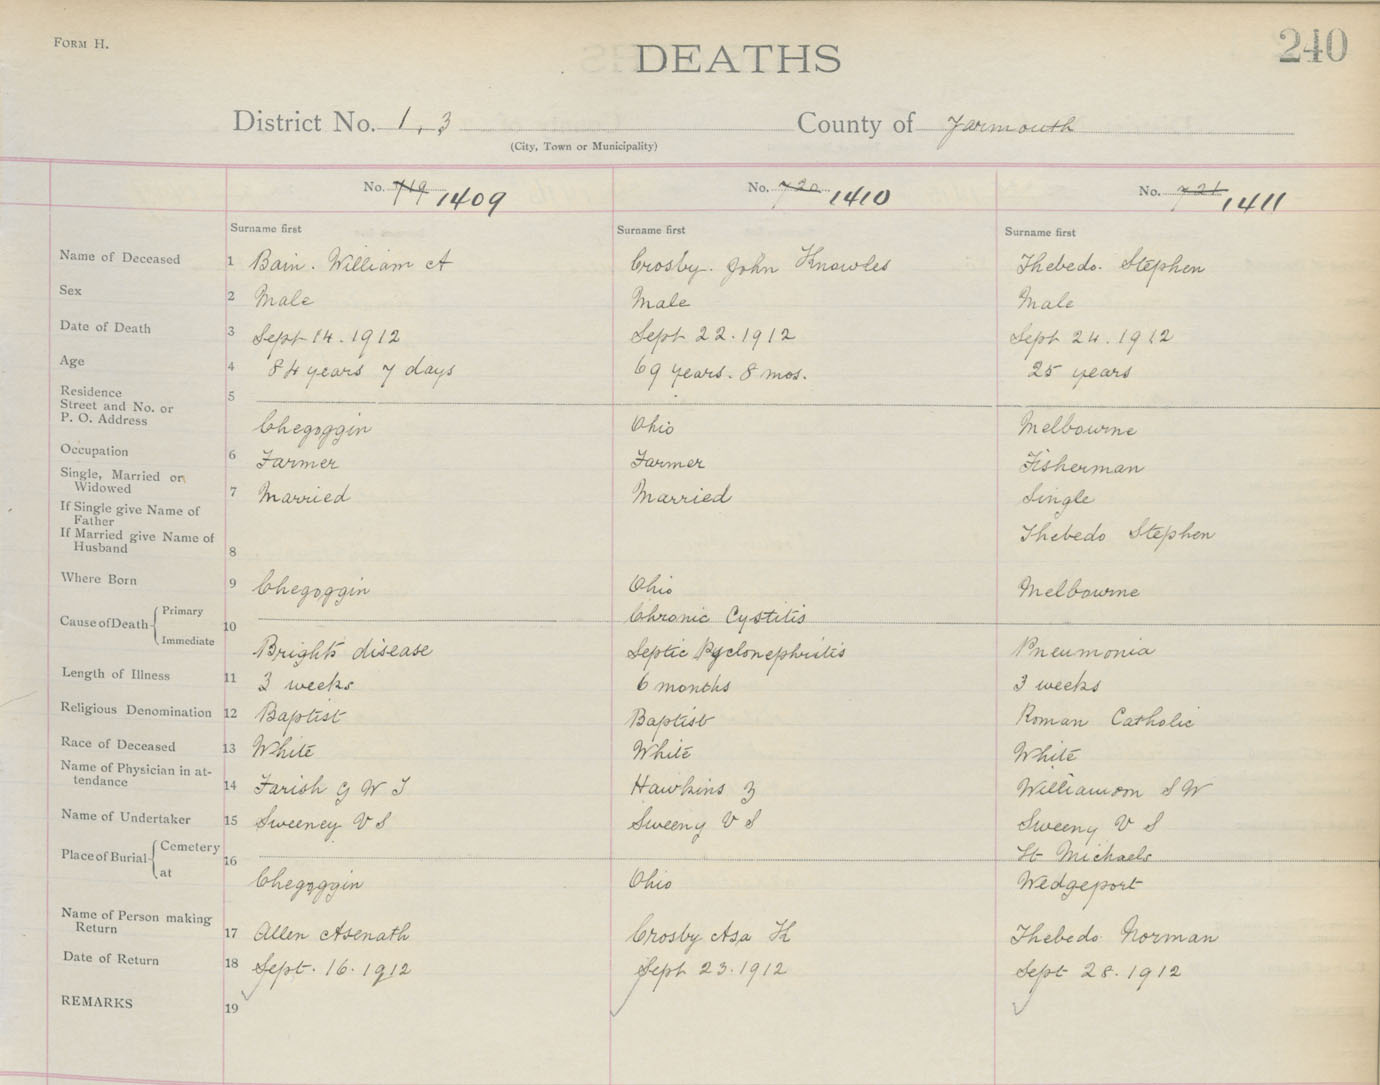 FORM H.
DEATHS
240
District No. 1, 3 County of Yarmouth
(City, Town or Municipality)
No. 719 1409 No. 720 1410 No. 721 1411
Surname first Surname first Surname first
Name of Deceased 1 Bain. William A Crosby. John Knowles Thebedo. Stephen
Sex 2 Male Male Male
Date of Death 3 Sept 14. 1912 Sept 22. 1912 Sept 24. 1912
Age 4 84 years 7 days 69 years. 8 mos. 25 years
Residence 5
Street and No. or
P. O. Address Chegoggin Ohio Melbourne
Occupation 6 Farmer Farmer Fisherman
Single, Married or
Widowed 7 Married Married Single
If Single give Name of
Father
If Married give Name of Thebedo Stephen
Husband 8
Where Born 9 Chegoggin Ohio Melbourne
Cause of Death Primary 10 Chronic Cystitis
Immediate Bright's disease Septic Pyelonephritis Pneumonia
Length of Illness 11 3 weeks 6 months 3 weeks
Religious Denomination 12 Baptist Baptist Roman Catholic
Race of Deceased 13 White White White
Name of Physician in at-
tendance 14 Farish G W T Hawkins Z Williamson S W
Name of Undertaker 15 Sweeney V S Sweeny V S Sweeny V S
Place of Burial Cemetery 16 St Michaels
at Chegoggin Ohio Wedgeport
Name of Person making
Return 17 Allen Asenath Crosby Asa K Thebedo Norman
Date of Return 18 Sept. 16. 1912 Sept 23. 1912 Sept 28. 1912
REMARKS 19